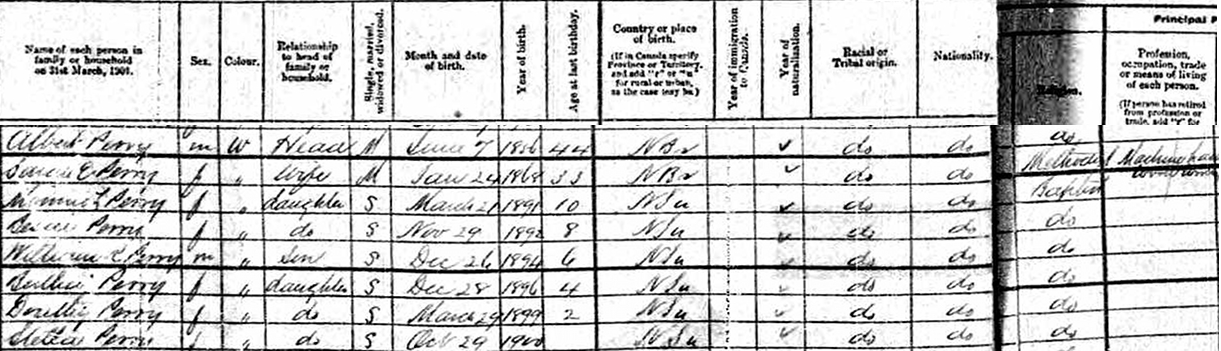 Name of each person in family or household on 31st March, 1901. Sex. Colour. Relationship to head of family or household. Single, married, widowed or divorced. Month and date of birth. Year of birth. Age at last birthday. Country or place of birth. (If in Canada specify Province or Territory, and add "r" or "u" for rural or urban, as the case may be.) Year of immigration to Canada. Year of naturalization. Racial or Tribal origin. Nationality. Religion. Principal P
Profession, occupation, trade or means of living of each person. (If person has retired from profession or trade, add "r" for
Albert Perry m W Head M June 7 1856 44 N B r ✓ do do do
E Perry f " Wife M Jan 24 1868 33 N B r ✓ do do Methodist
L Perry f " daughter S March 21 1891 10 N S u ✓ do do Baptist
Bessie Perry f " do S Nov 29 1892 8 N S u ✓ do do do
William Perry m " Son S Dec 26 1894 6 N S u ✓ do do do
Perry f " daughter S Dec 28 1896 4 N S u ✓ do do do
Perry f " do S March 29 1899 2 N S u ✓ do do do
Perry f " do S Oct 29 1900 N S u ✓ do do do